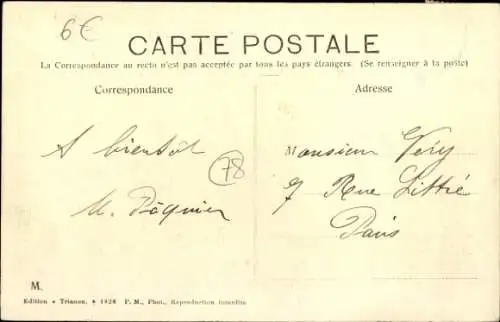 6€
CARTE POSTALE
La Correspondance au recto n'est pas acceptée par tous les pays étrangers. (Se renseigner à la poste)
Correspondance
Adresse
A bientôt
78
Monsieur Véry
7 Rue Littré
Paris
M.
M.
Edition • Trianon. • 1928 P. M., Phot., Reproduction interdite